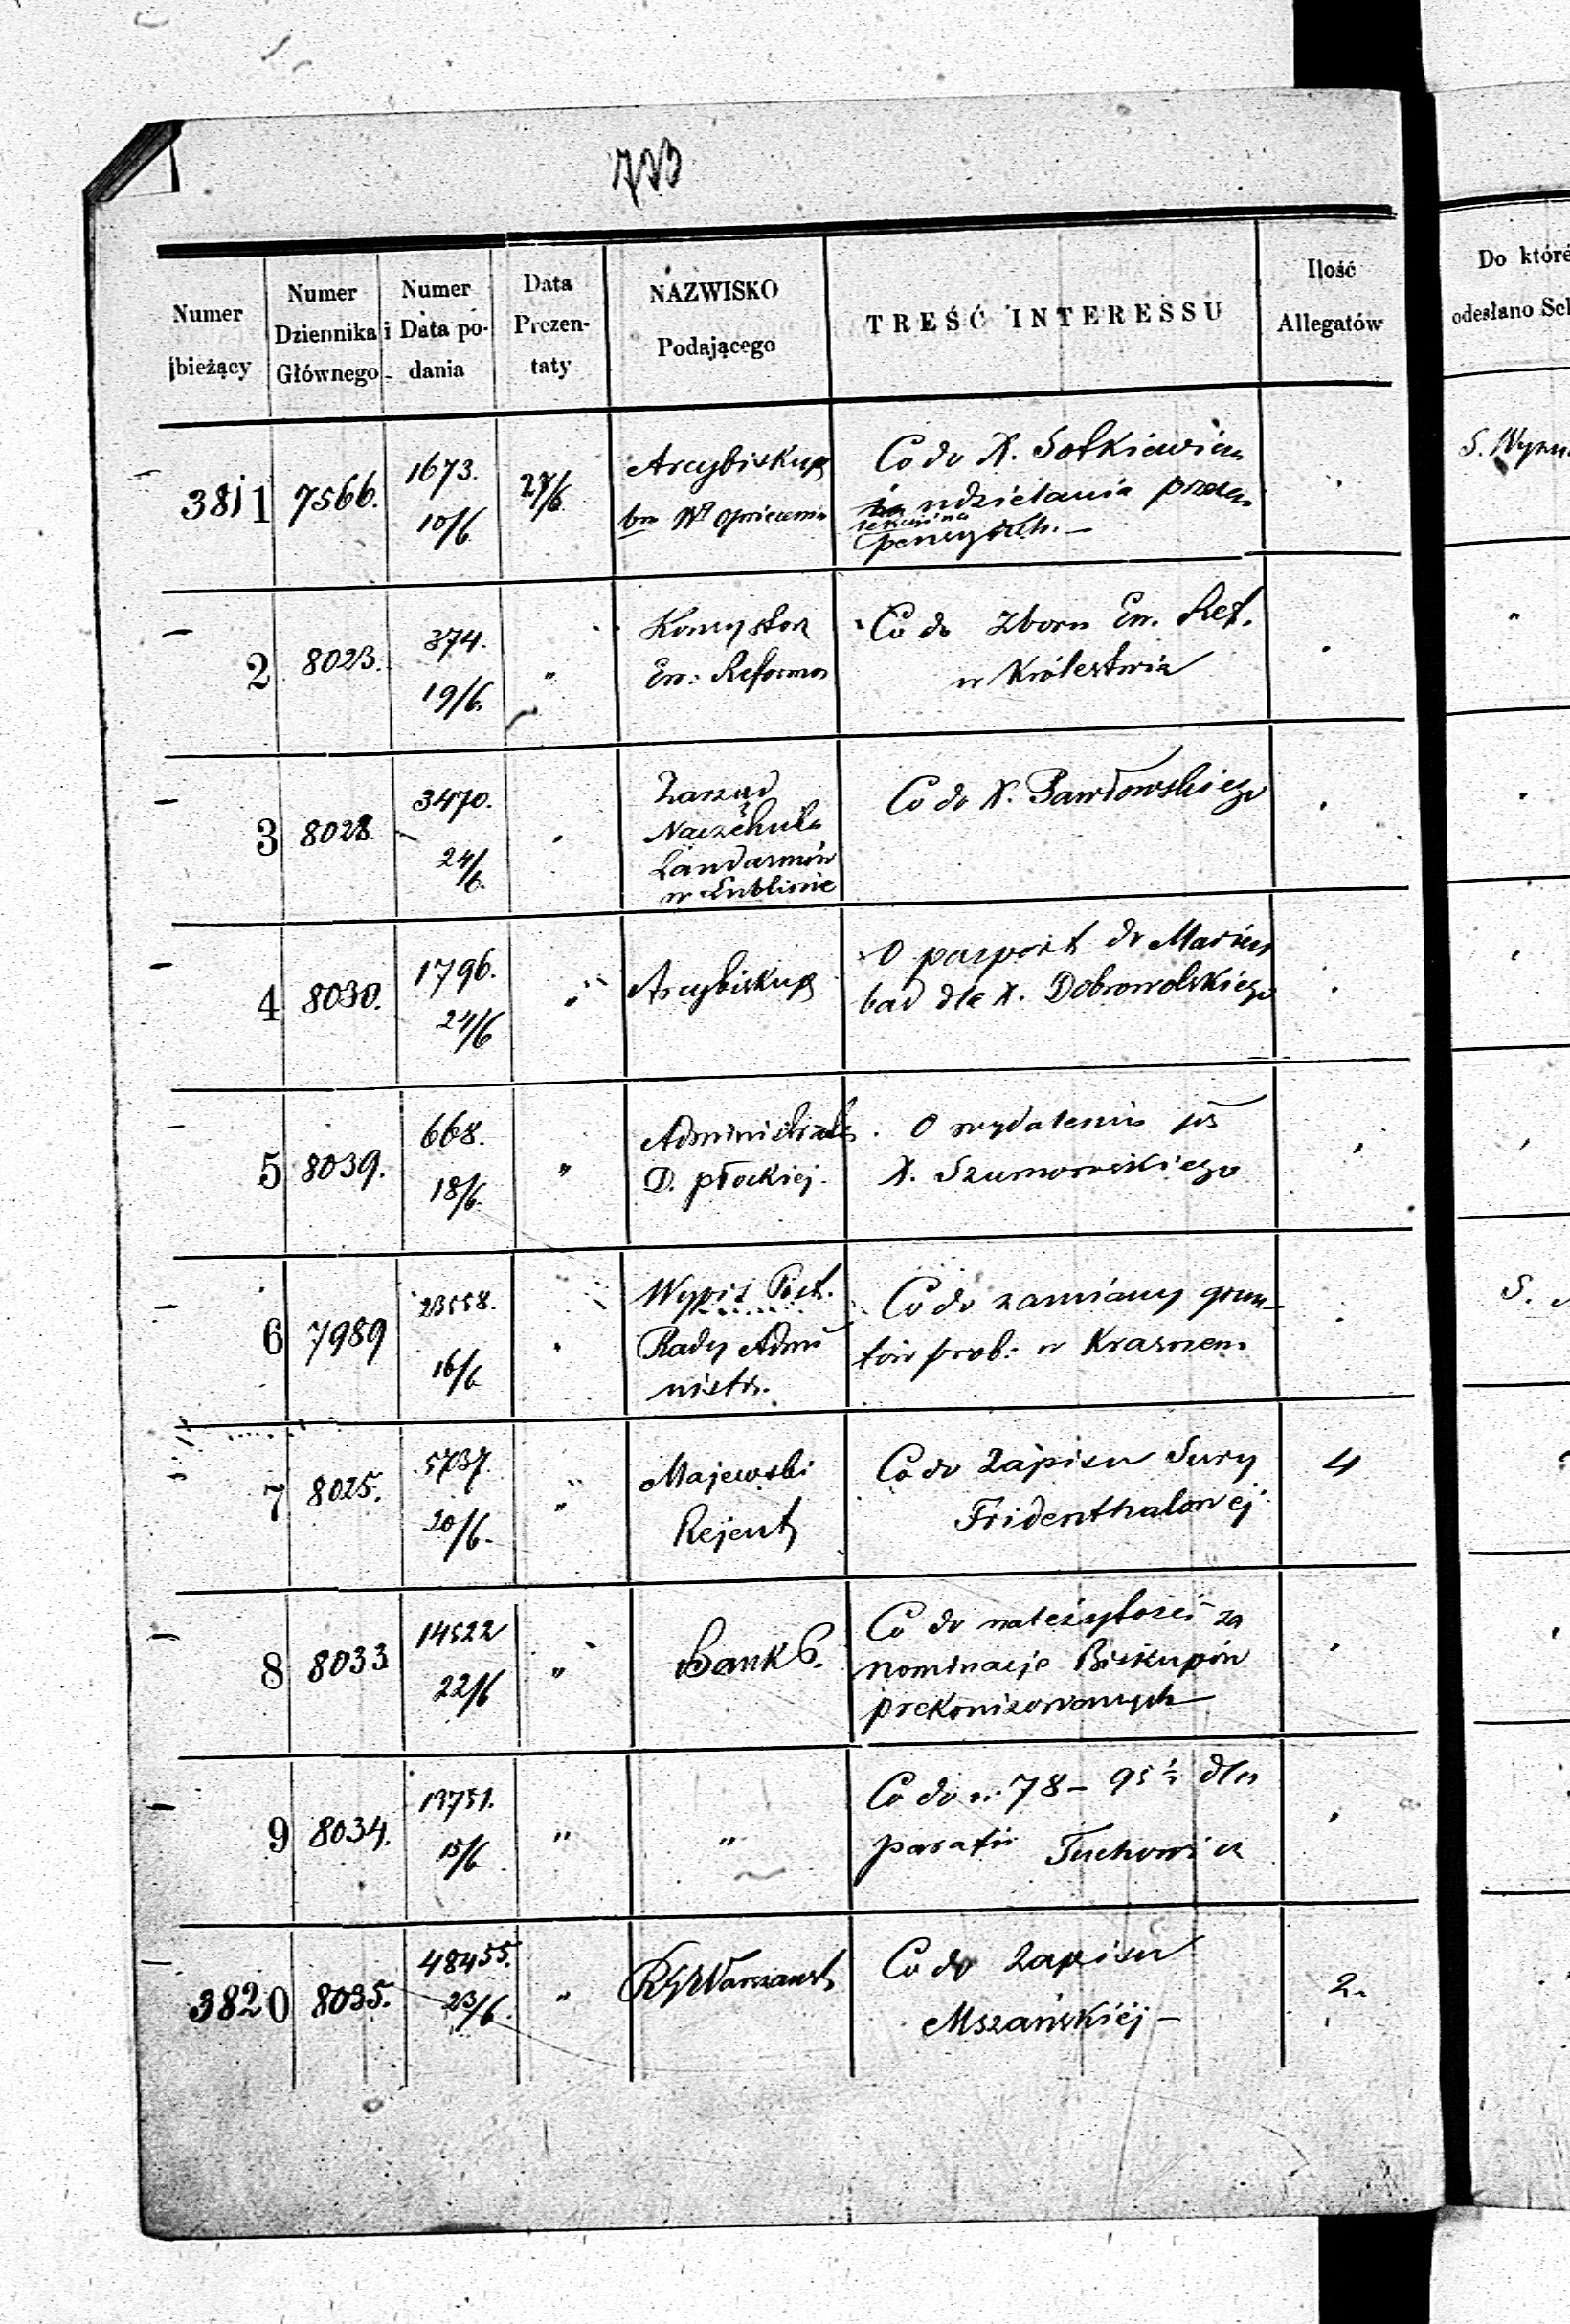 723
Numer bieżący
Numer Dziennika Głównego
Numer i Data podania
Data Prezentaty
NAZWISKO Podającego
TREŚĆ INTERESSU
Ilość Allegatów
Do które
odesłano
3811 7566. 1673. 10/6 27/6 Arcybiskup Co do X. Sotkiewicza
udzielania przez
2 8023. 374. 19/6. " Konsystorz Co do Zboru Ew. Ref.
Ew: Reform w Królestwie
3 8028. 3470. 24/6. Zarząd Co do X. Pawłowskiego
Naczelnika
Żandarmów
w Lublinie
4 8030. 1796. 24/6 " Arcybiskup O paszport do Marien
bad dla X. Dobrowolskiego
5 8039. 668. 18/6. " Administrator O wydaleniu
D. płockiej. X. Szumowskiego
6 7989 23558. 16/6 Wypis Post. Co do zamiany grun-
Rady Admi tów prob: w Krasnem
nistr.
7 8025. 5737. 20/6. " Majewski Co do Zapisu Sury 4
Rejent Fridenthalowej
8 8033 14522 22/6 " Bank P. Co do należytości za
nominacje Biskupów
prekonizowanych
9 8034. 13751. 15/6 " " Co do 78 - 95½ dla
parafii Tuchowicz
3820 8035. 48455. 23/6. " RGWarszawsk Co do Zapisu 2.
Mszańskiej -